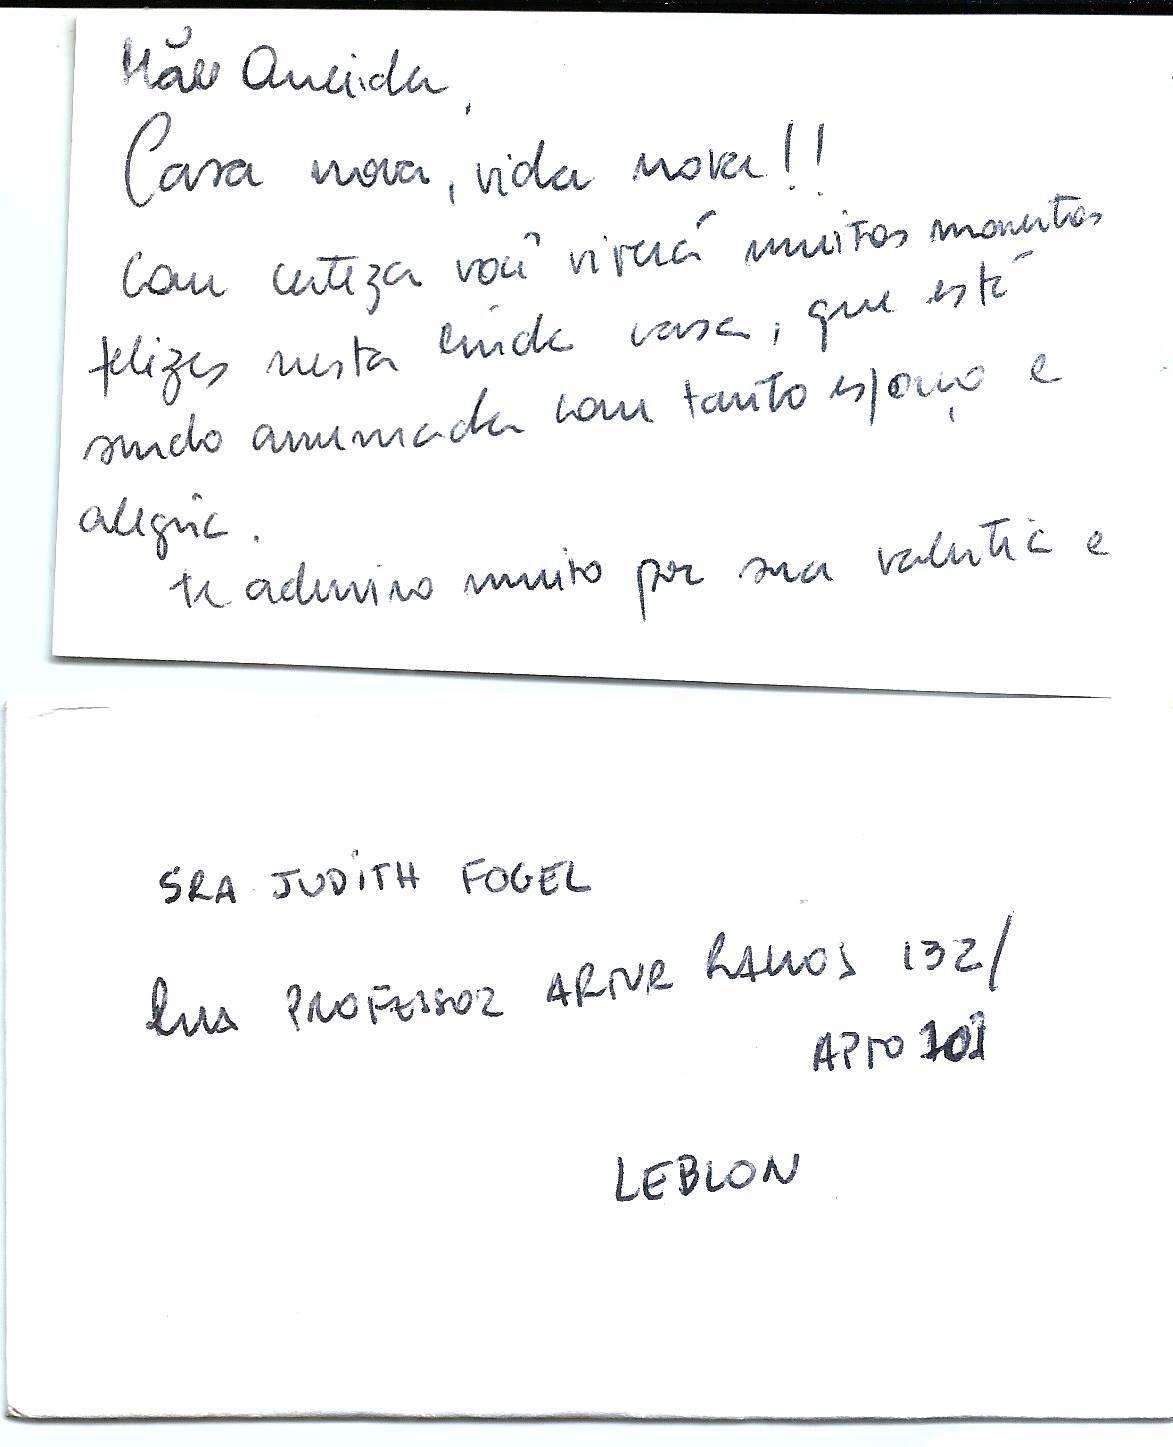 Mãe Querida,
Casa nova, vida nova!!
Com certeza você viverá muitos momentos
felizes nesta linda casa, que está
sendo arrumada com tanto esforço e
alegria.
te admiro muito por sua valentia e
SRA JUDITH FOGEL
Rua PROFESSOR ARTUR RAMOS 132/
APTO 101
LEBLON